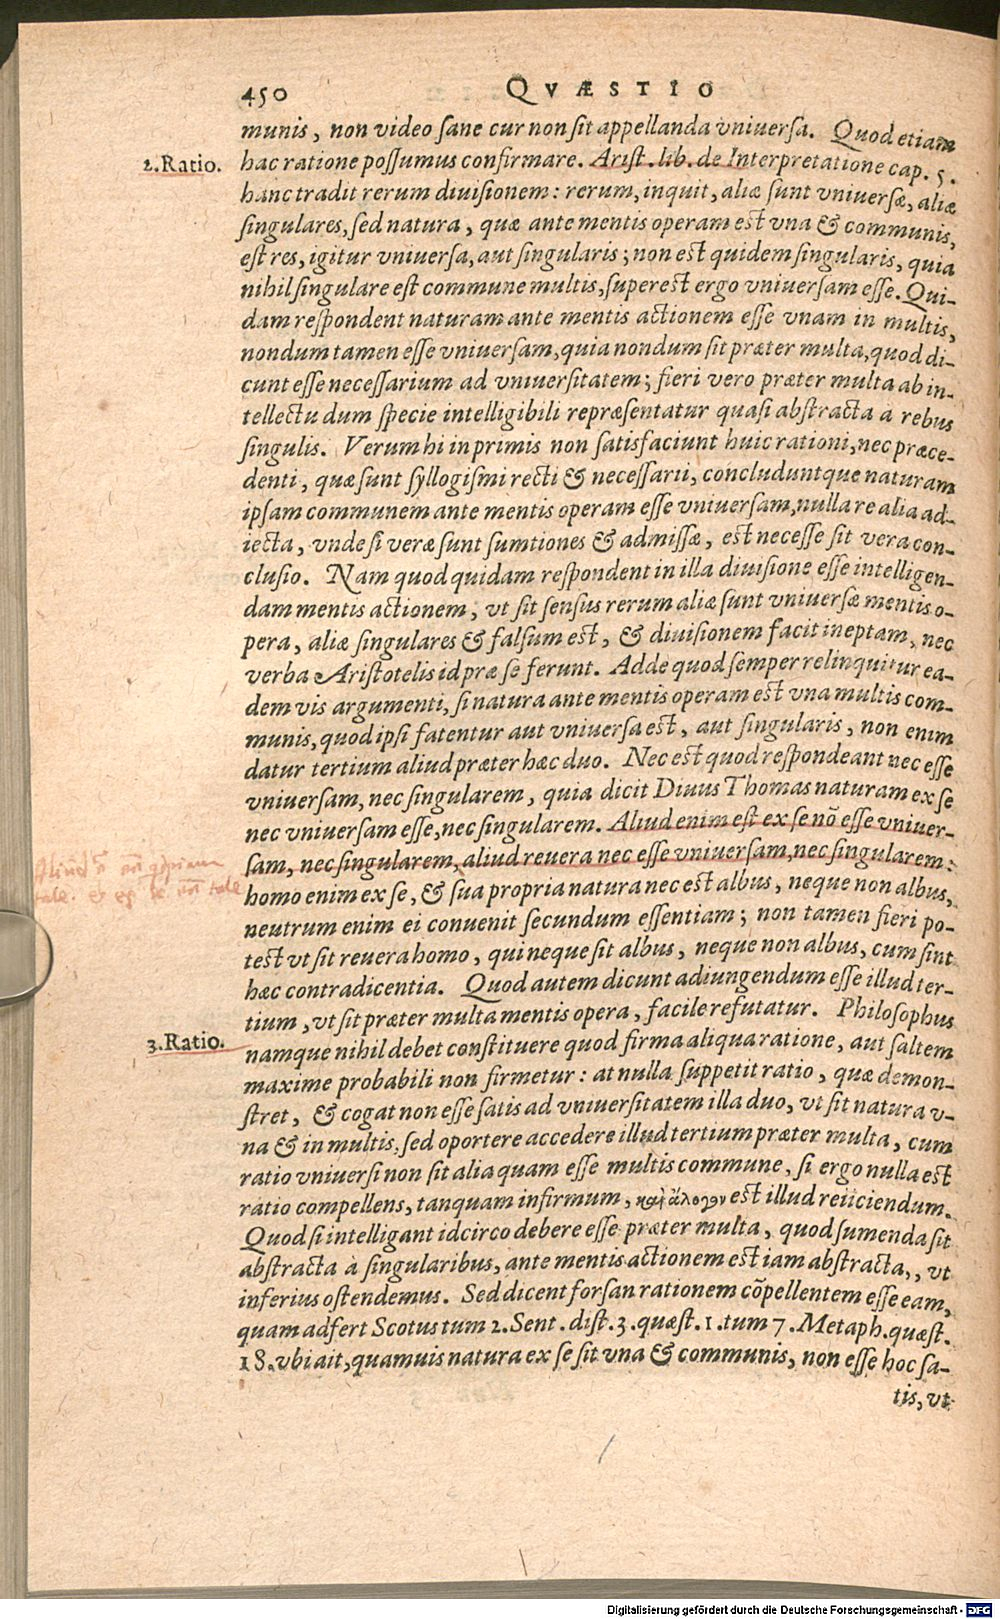 450 QVÆSTIO
munis, non video sane cur non sit appellanda vniuersa. Quod etiam
2. Ratio.
hac ratione possumus confirmare. Arist. lib. de Interpretatione cap. 5.
hanc tradit rerum diuisionem: rerum, inquit, aliæ sunt vniuersæ, aliæ
singulares, sed natura, quæ ante mentis operam est vna & communis,
est res, igitur vniuersa, aut singularis; non est quidem singularis, quia
nihil singulare est commune multis, superest ergo vniuersam esse. Qui-
dam respondent naturam ante mentis actionem esse vnam in multis,
nondum tamen esse vniuersam, quia nondum sit præter multa, quod di-
cunt esse necessarium ad vniuersitatem; fieri vero præter multa ab in-
tellectu dum specie intelligibili repræsentatur quasi abstracta à rebus
singulis. Verum hi inprimis non satisfaciunt huic rationi, nec præce-
denti, quæ sunt syllogismi recti & necessarii, concluduntque naturam
ipsam communem ante mentis operam esse vniuersam, nulla re alia ad-
iecta, vnde si veræ sunt sumtiones & admissæ, est necesse sit vera con-
clusio. Nam quod quidam respondent in illa diuisione esse intelligen-
dam mentis actionem, vt sit sensus rerum aliæ sunt vniuersæ mentis o-
pera, aliæ singulares & falsum est, & diuisionem facit ineptam, nec
verba Aristotelis id præ se ferunt. Adde quod semper relinquitur ea-
dem vis argumenti, si natura ante mentis operam est vna multis com-
munis, quod ipsi fatentur aut vniuersa est, aut singularis, non enim
datur tertium aliud præter hæc duo. Nec est quod respondeant nec esse
vniuersam, nec singularem, quia dicit Diuus Thomas naturam ex se
nec vniuersam esse, nec singularem. Aliud enim est ex se nō esse vniuer-
sam, nec singularem, aliud reuera nec esse vniuersam, nec singularem:
homo enim ex se, & sua propria natura nec est albus, neque non albus,
neutrum enim ei conuenit secundum essentiam; non tamen fieri po-
test vt sit reuera homo, qui neque sit albus, neque non albus, cum sint
hæc contradicentia. Quod autem dicunt adiungendum esse illud ter-
tium, vt sit præter multa mentis opera, facile refutatur. Philosophus
3. Ratio.
namque nihil debet constituere quod firma aliqua ratione, aut saltem
maxime probabili non firmetur: at nulla suppetit ratio, quæ demon-
stret, & cogat non esse satis ad vniuersitatem illa duo, vt sit natura v-
na & in multis, sed oportere accedere illud tertium præter multa, cum
ratio vniuersi non sit alia quam esse multis commune, si ergo nulla est
ratio compellens, tanquam infirmum, καὶ ἄλογον est illud reiiciendum.
Quod si intelligant idcirco debere esse præter multa, quod sumenda sit
abstracta à singularibus, ante mentis actionem est iam abstracta,, vt
inferius ostendemus. Sed dicent forsan rationem cōpellentem esse eam,
quam adfert Scotus tum 2. Sent. dist. 3. quæst. 1. tum 7. Metaph. quæst.
18. vbi ait, quamuis natura ex se sit vna & communis, non esse hoc sa-
tis, vt
Digitalisierung gefördert durch die Deutsche Forschungsgemeinschaft - DFG